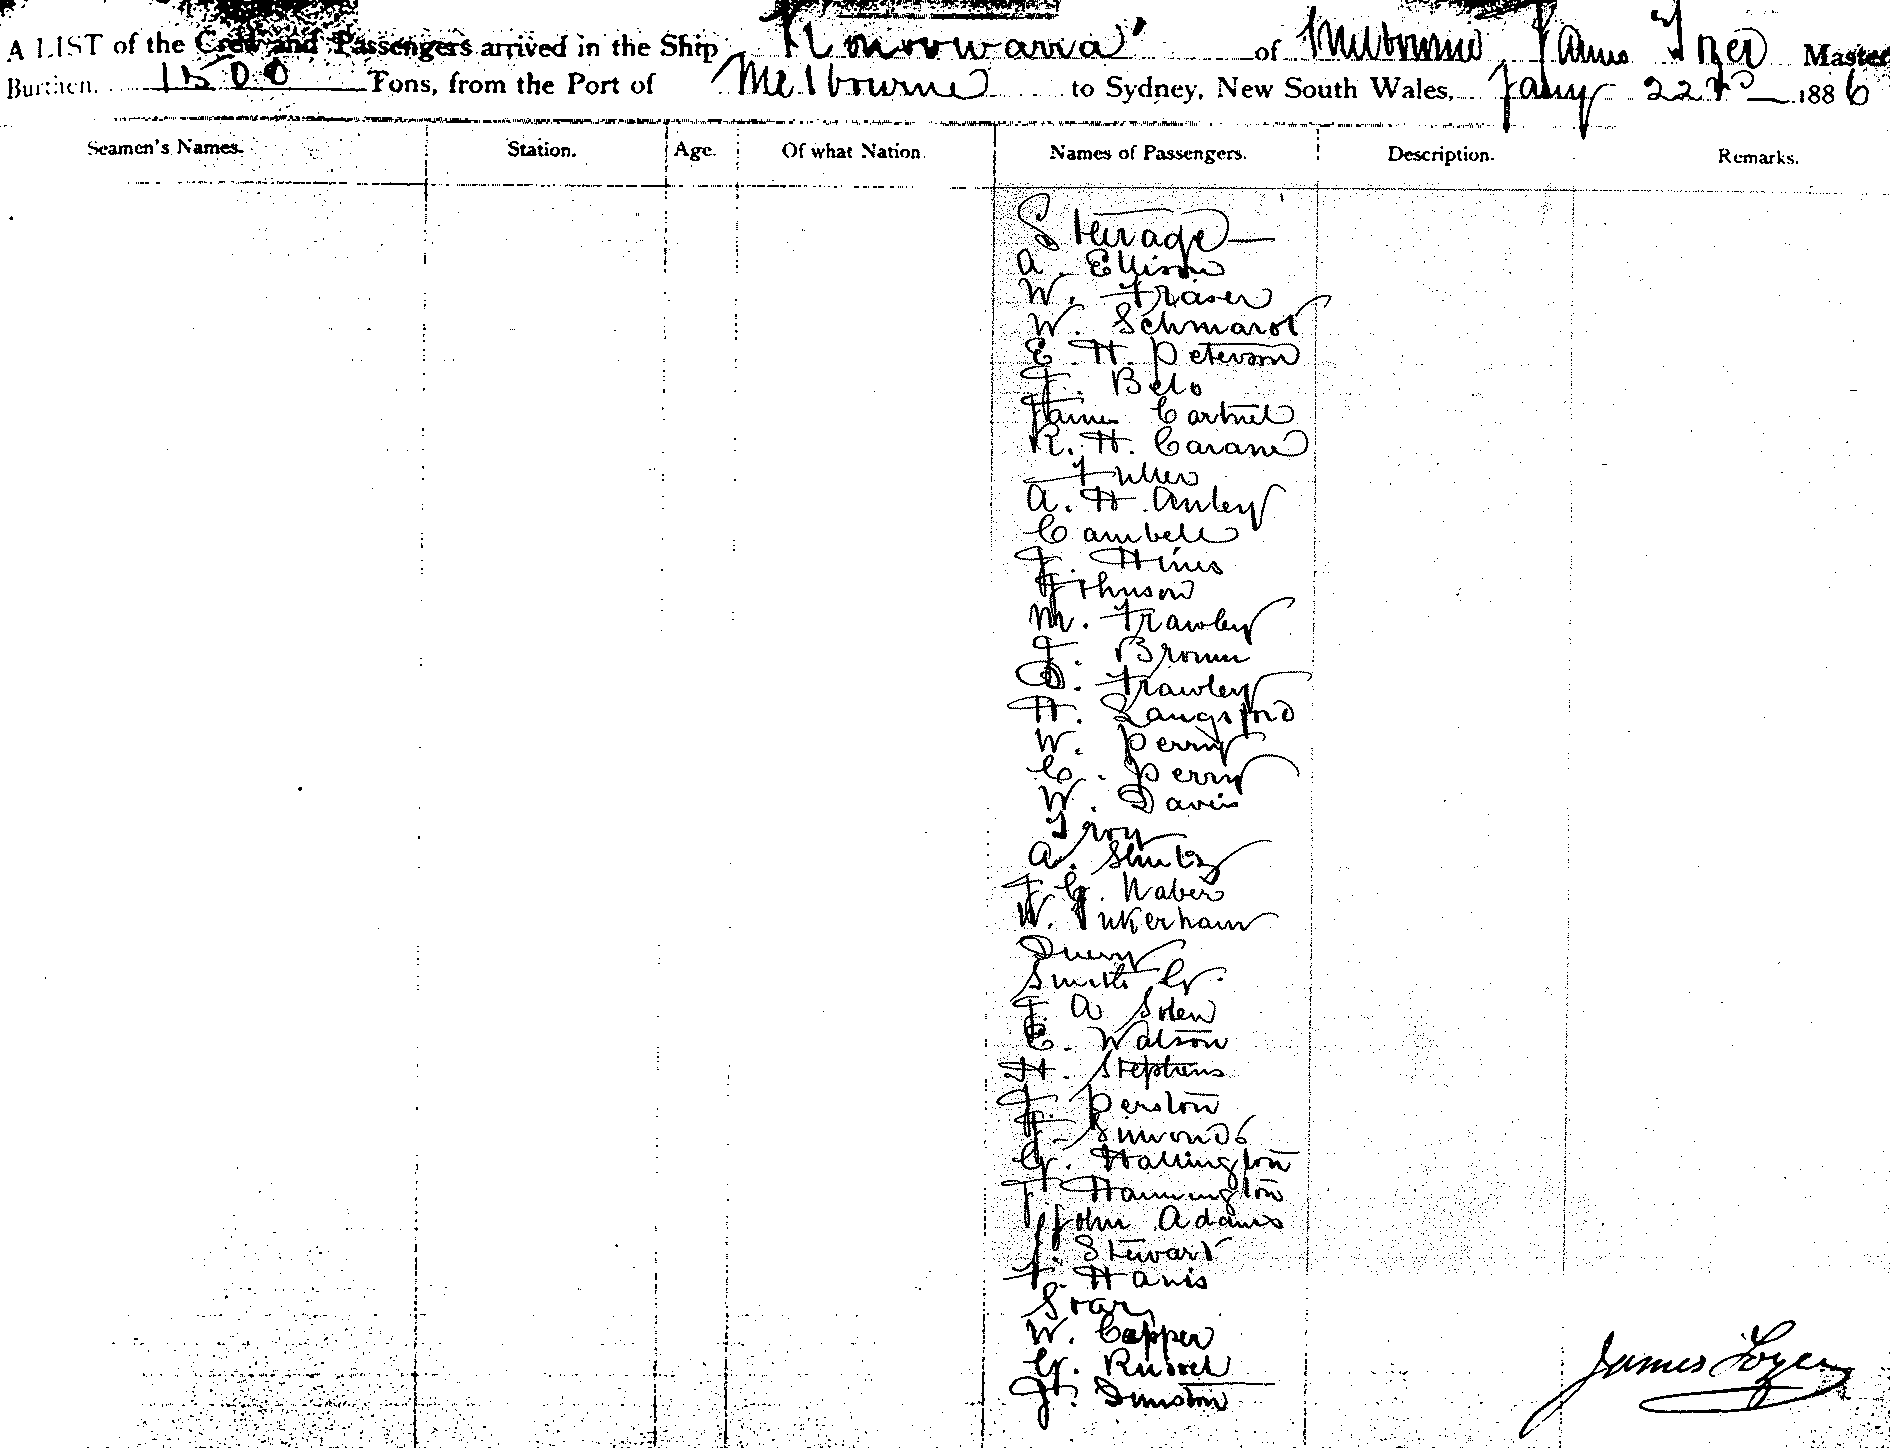 A LIST of the Crew and Passengers arrived in the Ship Konoowarra of Melbourne James Tozer Master
Burthen. 1500 Tons, from the Port of Melbourne to Sydney, New South Wales, Jany 22nd 1886
Seamen's Names. Station. Age. Of what Nation. Names of Passengers. Description. Remarks.
Steerage
A. Ellison
W. Fraser
W.
E. H. Peterson
F. Belo
James Cartnel
R. H.
Fuller
A. H. Anley
Cambell
J. Hines
Johnson
M. Frawley
J. Brown
D. Frawley
H. Langsford
W. Perry
C. Perry
W. Davis
Troy
A. Shultz
J. G. Naber
W.
Smith G.
J. A Solen
C. Watson
H. Stephens
J. Perston
J. Simonds
G. Hallington
Hannington
John Adams
J. Stewart
F. Harris
Soar
W. Capper
G. Russel
Dunston
James Tozer